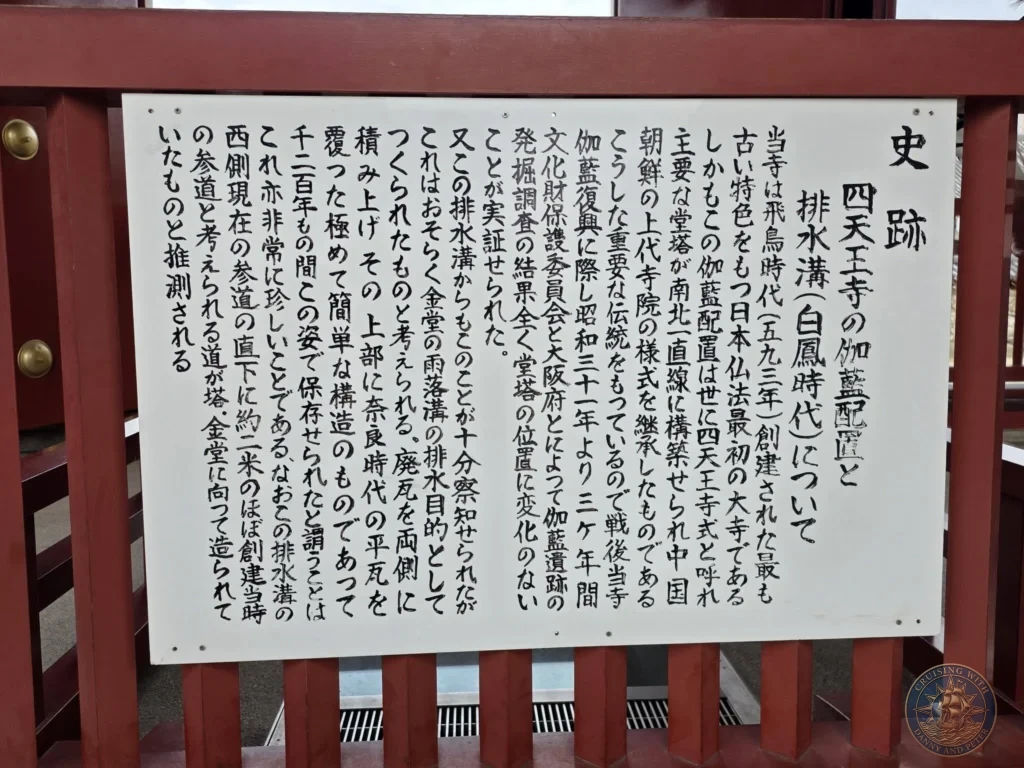 史跡
四天王寺の伽藍配置と
排水溝(白鳳時代)について
当寺は飛鳥時代(五九三年)創建された最も
古い特色をもつ日本仏法最初の大寺である
しかもこの伽藍配置は世に四天王寺式と呼れ
主要な堂塔が南北一直線に構築せられ中国
朝鮮の上代寺院の様式を継承したものである
こうした重要な伝統をもっているので戦後当寺
伽藍復興に際し昭和三十一年より三ヶ年間
文化財保護委員会と大阪府とによって伽藍遺跡の
発掘調査の結果全く堂塔の位置に変化のない
ことが実証せられた。
又この排水溝からもこのことが十分察知せられたが
これはおそらく金堂の雨落溝の排水目的として
つくられたものと考えられる、廃瓦を両側に
積み上げその上部に奈良時代の平瓦を
覆った極めて簡単な構造のものであって
千二百年もの間この姿で保存せられたと謂うことは
これ亦非常に珍しいことである、なおこの排水溝の
西側現在の参道の直下に約二米のほぼ創建当時
の参道と考えられる道が塔、金堂に向って造られて
いたものと推測される
CRUISING WITH
DANNY AND PETER